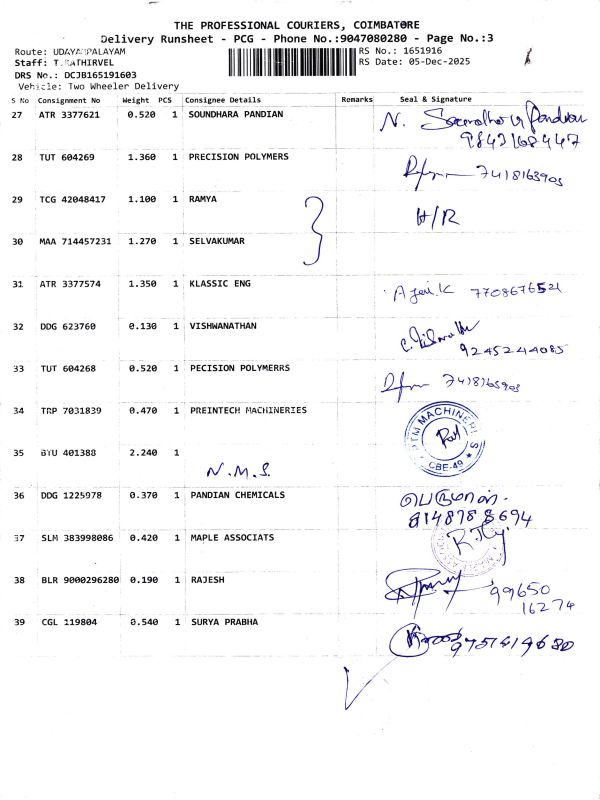 THE PROFESSIONAL COURIERS, COIMBATORE
Delivery Runsheet - PCG - Phone No.:9047080280 - Page No.:3
Route: UDAYAMPALAYAM
RS No.: 1651916
Staff: T.KATHIRVEL
RS Date: 05-Dec-2025
DRS No.: DCJB165191603
Vehicle: Two Wheeler Delivery
S No Consignment No Weight PCS Consignee Details Remarks Seal & Signature
27 ATR 3377621 0.520 1 SOUNDHARA PANDIAN N. Pandian
9842168447
28 TUT 604269 1.360 1 PRECISION POLYMERS 7418163903
29 TCG 42048417 1.100 1 RAMYA H/R
30 MAA 714457231 1.270 1 SELVAKUMAR
31 ATR 3377574 1.350 1 KLASSIC ENG 7708676521
32 DDG 623760 0.130 1 VISHWANATHAN
9245244085
33 TUT 604268 0.520 1 PECISION POLYMERRS 7418163903
34 TRP 7031839 0.470 1 PREINTECH MACHINERIES MACHINERIES CBE-49
35 BYU 401388 2.240 1
N.M.S.
36 DDG 1225978 0.370 1 PANDIAN CHEMICALS பெருமாள்.
8148788694
37 SLM 383998086 0.420 1 MAPLE ASSOCIATS
38 BLR 9000296280 0.190 1 RAJESH 99650
16274
39 CGL 119804 0.540 1 SURYA PRABHA